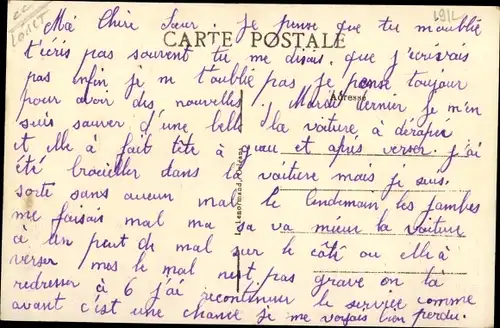 Ma Chère Sœur. je pense que tu m'oublie
CARTE POSTALE
t'écris pas souvent tu me disais que j'écrivais
pas enfin je ne t'oublie pas je pense toujour
Adresse
pour avoir des nouvelles. Mardi dernier je m'en
suis sauver d'une belle la voiture, à dérapée
et elle à fait tête à queau et apres verser. j'ai
été dans la voiture mais je suis
sorte sans aucun mal le lendemain les jambes
me faisais mal ma sa va mieux la voiture
à un peut de mal sur le côté ou elle à
verser mes le mal n'est pas grave on la
redresser à 6 j'ai recontinuer le service comme
avant c'est une chance je me voyais bien perdu.